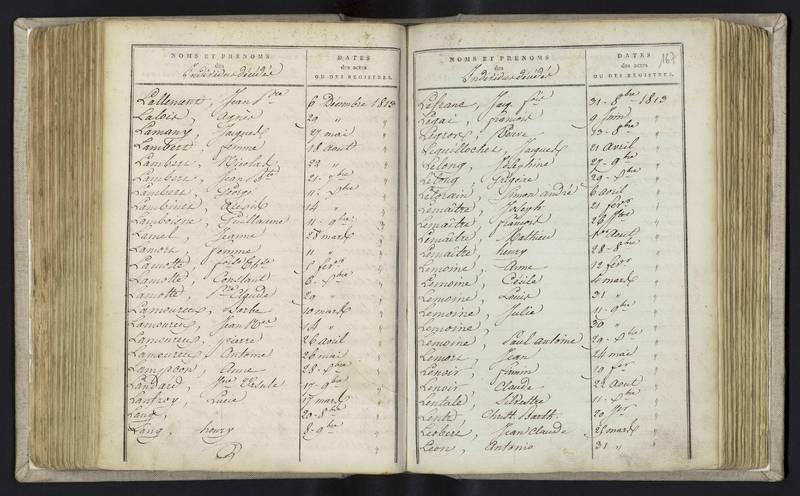 NOMS ET PRÉNOMS
des
Individus décédés
DATES
des actes
OU DES REGISTRES.
Lallemant, Jean 6 Décembre 1813
Lalois, Agnès 29 "
Lamany, Jacques 27 mai "
Lambert, femme 18 Aout "
Lambert, Nicolas 22 " "
Lambert, Jean Bte 21 7bre "
Lambert, George 11 "
Lambinet, Alexis 14 " "
Lamboisne, Guillaume 11 9bre "
Lamel, Jeanne 28 mars "
Lamort, femme 11 " "
Lamotte, 5 fevr "
Lamotte, Constant 8 "
Lamotte, Claude 29 " "
Lamoureux, Barbe 10 mars "
Lamoureux, Jean 14 " "
Lamoureux, pierre 26 avril "
Lamoureux, Antoine 26 mai "
Lampson, Anne 28 "
Landard, 17 9bre "
Lanfroy, Lucie 17 mars "
Lang, 20 8bre "
Lang, henry 8 9bre "
NOMS ET PRÉNOMS
des
Individus décédés
DATES
des actes
OU DES REGISTRES.
167
Lefranc, Jaq. 31 8bre 1813
Legai, francois 9 Juin "
Legros, Pierre 13 8bre "
Lequillochet, Jacques 21 Avril "
Lelong, Josephine 27 9bre "
Lelong, Grégoire 29 "
Lelorain, Simon andré 6 avril "
Lemaître, Joseph 21 fevr "
Lemaître, francois 26 "
Lemaître, Mathieu Aout "
Lemaître, henry 28 8bre "
Lemoine, Anne 12 fevr "
Lemoine, Cécile mars "
Lemoine, Louis 31 " "
Lemoine, Julie 11 9bre "
Lemoine, 30 " "
Lemoine, Paul antoine 29 "
Lemort, Jean 24 mai "
Lenoir, firmin 19 fevr "
Lenoir, Claude 28 Aout "
Lentale, Silvestre 11 "
Lenté, Christ. Barth. 20 "
Leobert, Jean Claude 21 mars "
Leon, Antonio 31 " "